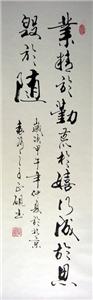 業精於勤荒於嬉行成於思
毀於隨
歲次甲午年仲夏於北京